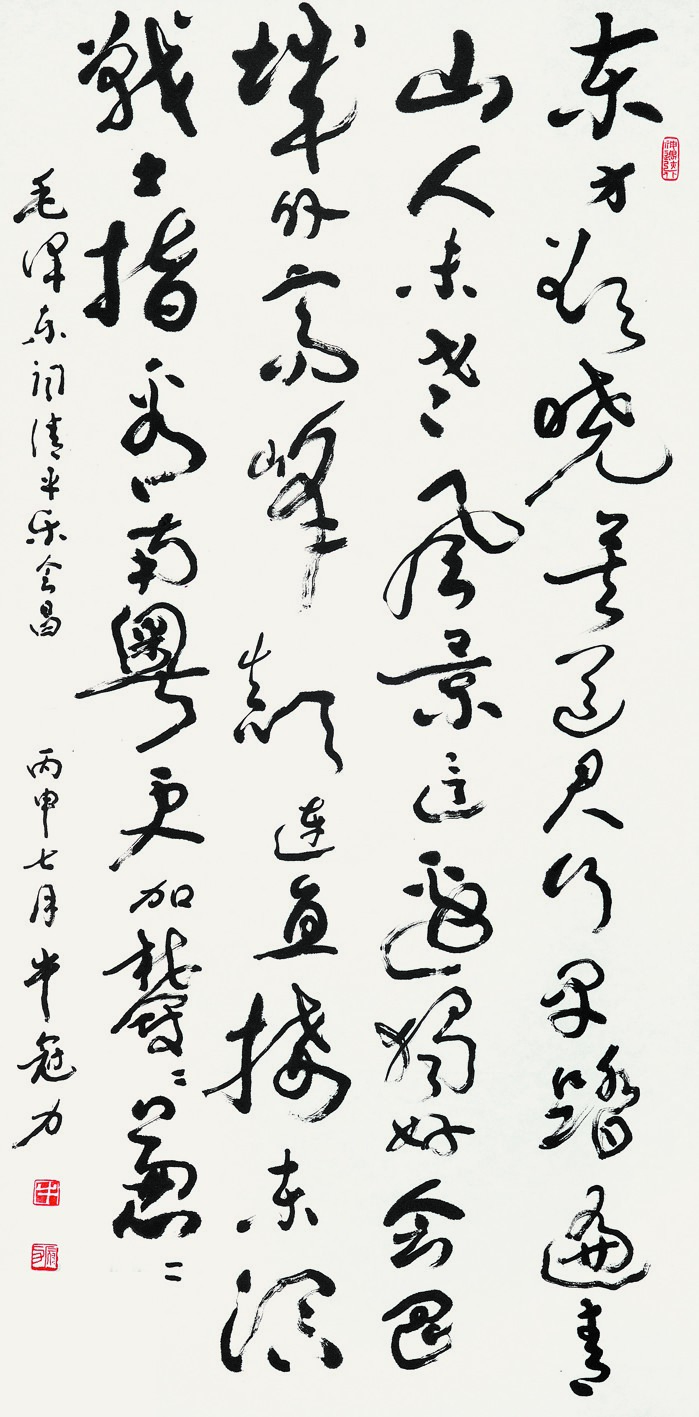 东方欲晓莫道君行早踏遍青
山人未老风景這邊獨好会昌
城外高峰颠连直接东溟
战士指看南粤更加鬱々葱々
毛泽东词清平乐会昌 丙申七月牛冠力